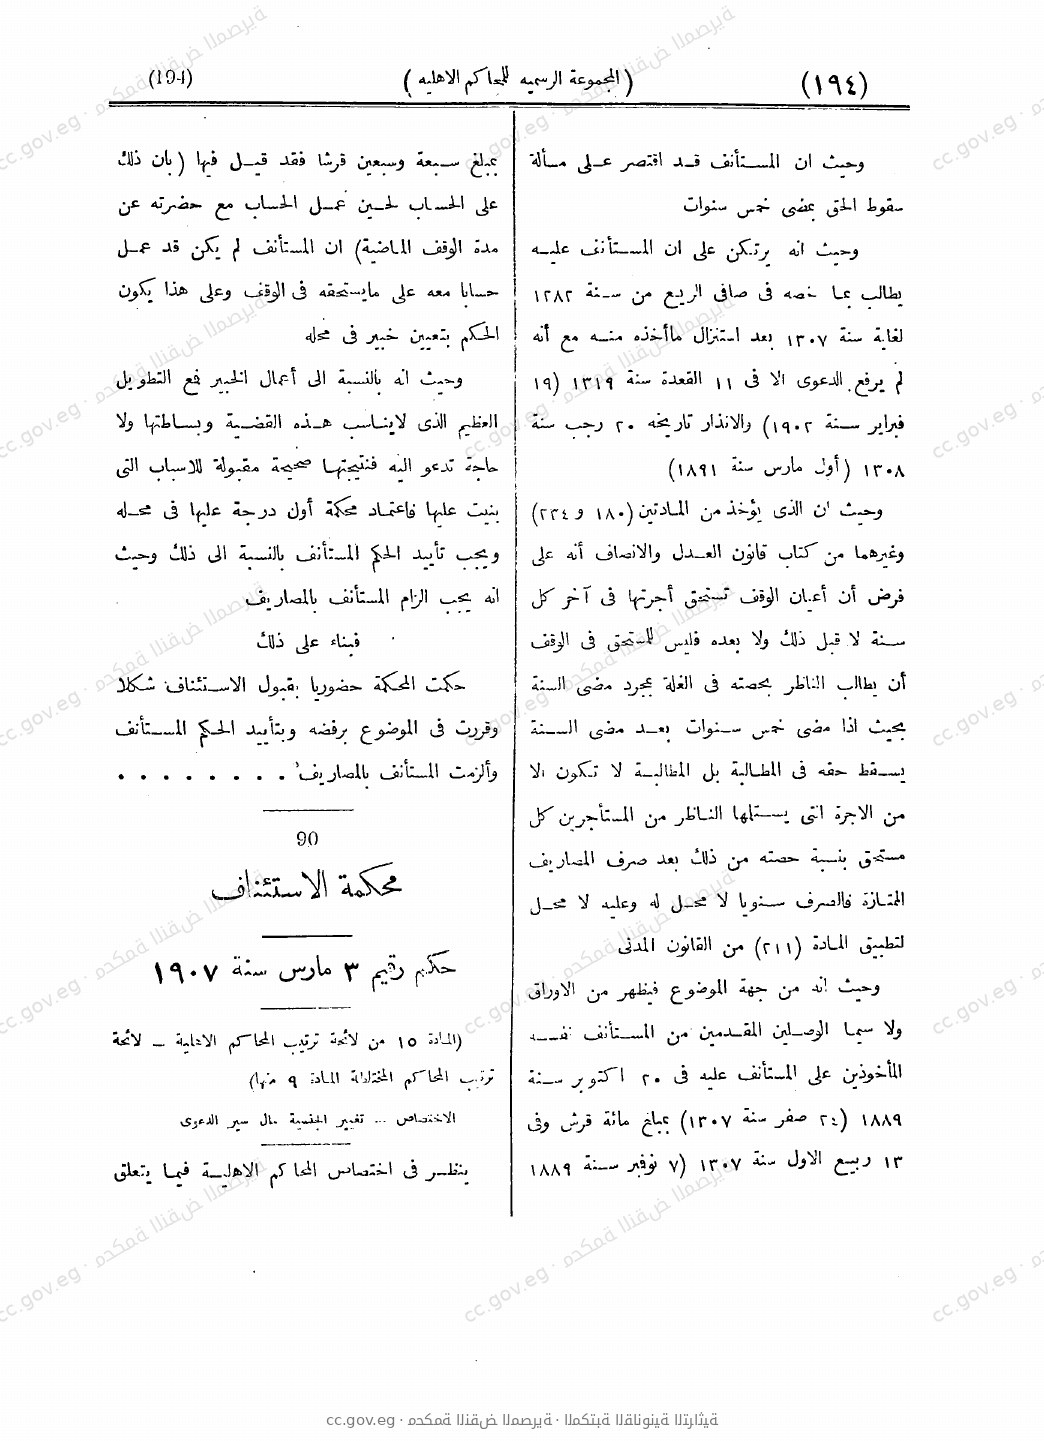 (١٩٤)
(المجموعة الرسميه للمحاكم الاهليه)
(194)
وحيث ان المستأنف قد اقتصر على مسألة
سقوط الحق بمضى خمس سنوات
وحيث انه يرتكن على ان المستأنف عليه
يطالب بما خصه فى صافى الريع من سنة ١٢٨٢
لغاية سنة ١٣٠٧ بعد استنزال ماأخذه منه مع أنه
لم يرفع الدعوى الا فى ١١ القعدة سنة ١٣١٩ (١٩
فبراير سنة ١٩٠٢) والانذار تاريخه ٢٠ رجب سنة
١٣٠٨ (أول مارس سنة ١٨٩١)
وحيث ان الذى يؤخذ من المادتين (١٨٠ و ٢٣٤)
وغيرهما من كتاب قانون العدل والانصاف أنه على
فرض أن أعيان الوقف تستحق أجرتها فى آخر كل
سنة لا قبل ذلك ولا بعده فليس للمستحق فى الوقف
أن يطالب الناظر بحصته فى الغلة بمجرد مضى السنة
بحيث اذا مضى خمس سنوات بعد مضى السنة
يسقط حقه فى المطالبة بل المطالبة لا تكون الا
من الاجرة التى يستلمها الناظر من المستأجرين كل
مستحق بنسبة حصته من ذلك بعد صرف المصاريف
الممتازة فالصرف سنويا لا محل له وعليه لا محل
لتطبيق المادة (٢١١) من القانون المدنى
وحيث انه من جهة الموضوع فيظهر من الاوراق
ولا سيما الوصلين المقدمين من المستأنف نفسه
المأخوذين على المستأنف عليه فى ٢٠ اكتوبر سنة
١٨٨٩ (٢٤ صفر سنة ١٣٠٧) بمبلغ مائة قرش وفى
١٣ ربيع الاول سنة ١٣٠٧ (٧ نوفبر سنة ١٨٨٩
بمبلغ سبعة وسبعين قرشا فقد قيل فيها (بان ذلك
على الحساب لحين عمل الحساب مع حضرته عن
مدة الوقف الماضية) ان المستأنف لم يكن قد عمل
حسابا معه على مايستحقه فى الوقف وعلى هذا يكون
الحكم بتعيين خبير فى محله
وحيث انه بالنسبة الى أعمال الخبير فمع التطويل
العظيم الذى لايناسب هذه القضية وبساطتها ولا
حاجة تدعو اليه فنتيجتها صحيحة مقبولة للاسباب التى
بنيت عليها فاعتماد محكمة أول درجة عليها فى محله
ويجب تأييد الحكم المستأنف بالنسبة الى ذلك وحيث
انه يجب الزام المستأنف بالمصاريف
فبناء على ذلك
حكمت المحكمة حضوريا بقبول الاستئناف شكلا
وقررت فى الموضوع برفضه وبتأييد الحكم المستأنف
وألزمت المستأنف بالمصاريف . . . . . . . .
90
محكمة الاستئناف
حكم رقيم ٣ مارس سنة ١٩٠٧
(المادة ١٥ من لائحة ترتيب المحاكم الاهلية – لائحة
ترتيب المحاكم المختلطة المادة ٩ منها)
الاختصاص – تغيير الجنسية حال سير الدعوى
ينظر فى اختصاص المحاكم الاهلية فيما يتعلق
cc.gov.eg · محكمة النقض المصرية · المكتبة القانونية التراثية